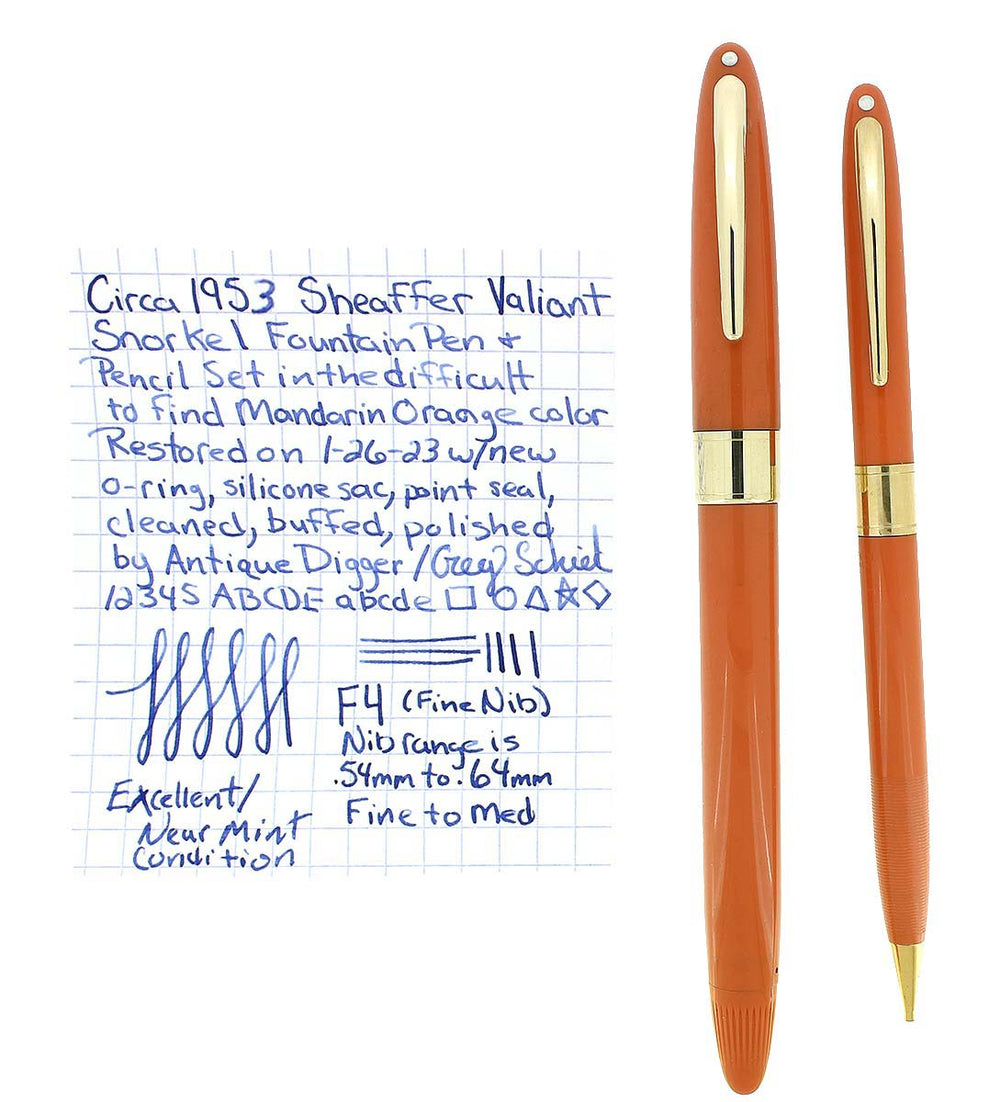 Circa 1953 Sheaffer Valiant
Snorkel Fountain Pen &
Pencil Set in the difficult
to find Mandarin Orange color
Restored on 1-26-23 w/new
o-ring, silicone sac, point seal,
cleaned, buffed, polished
by Antique Digger / Greg
12345 ABCDE abcde
F4 (Fine Nib)
Nib range is
.54mm to .64mm
Fine to Med
Excellent/
Near Mint
Condition